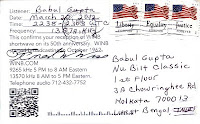 Listener: Babul Gupta
Date: March 20, 2012
Time: 2238-2308 UTC
Frequency: 13570 KHz
This confirms your reception of WINB
shortwave on its 50th anniversary. WINB
Broadcasting since October 1962
WINB.COM
9265 kHz 5 PM to 8 AM Eastern
13570 kHz 8 AM to 5 PM Eastern
Telephone audio 712-432-7752
Liberty
Equality
Justice
Babul Gupta
Nu Bilt Classic
1st Floor
3A Chowringhee Rd
Kolkata 700013
West Bengal